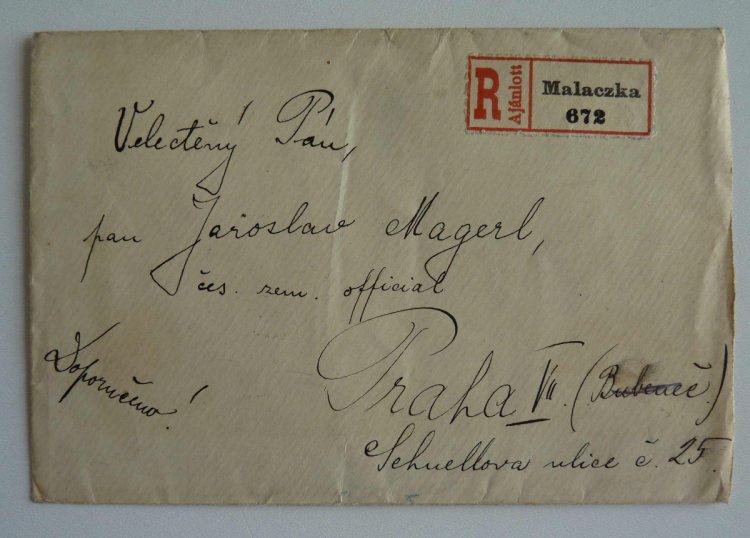 R Ajánlott Malaczka
672
Velectěný Pán,
pan Jaroslav Magerl,
čes. zem. official
Doporučeno!
Praha VII. (Bubeneč.)
Schnellova ulice č. 25.